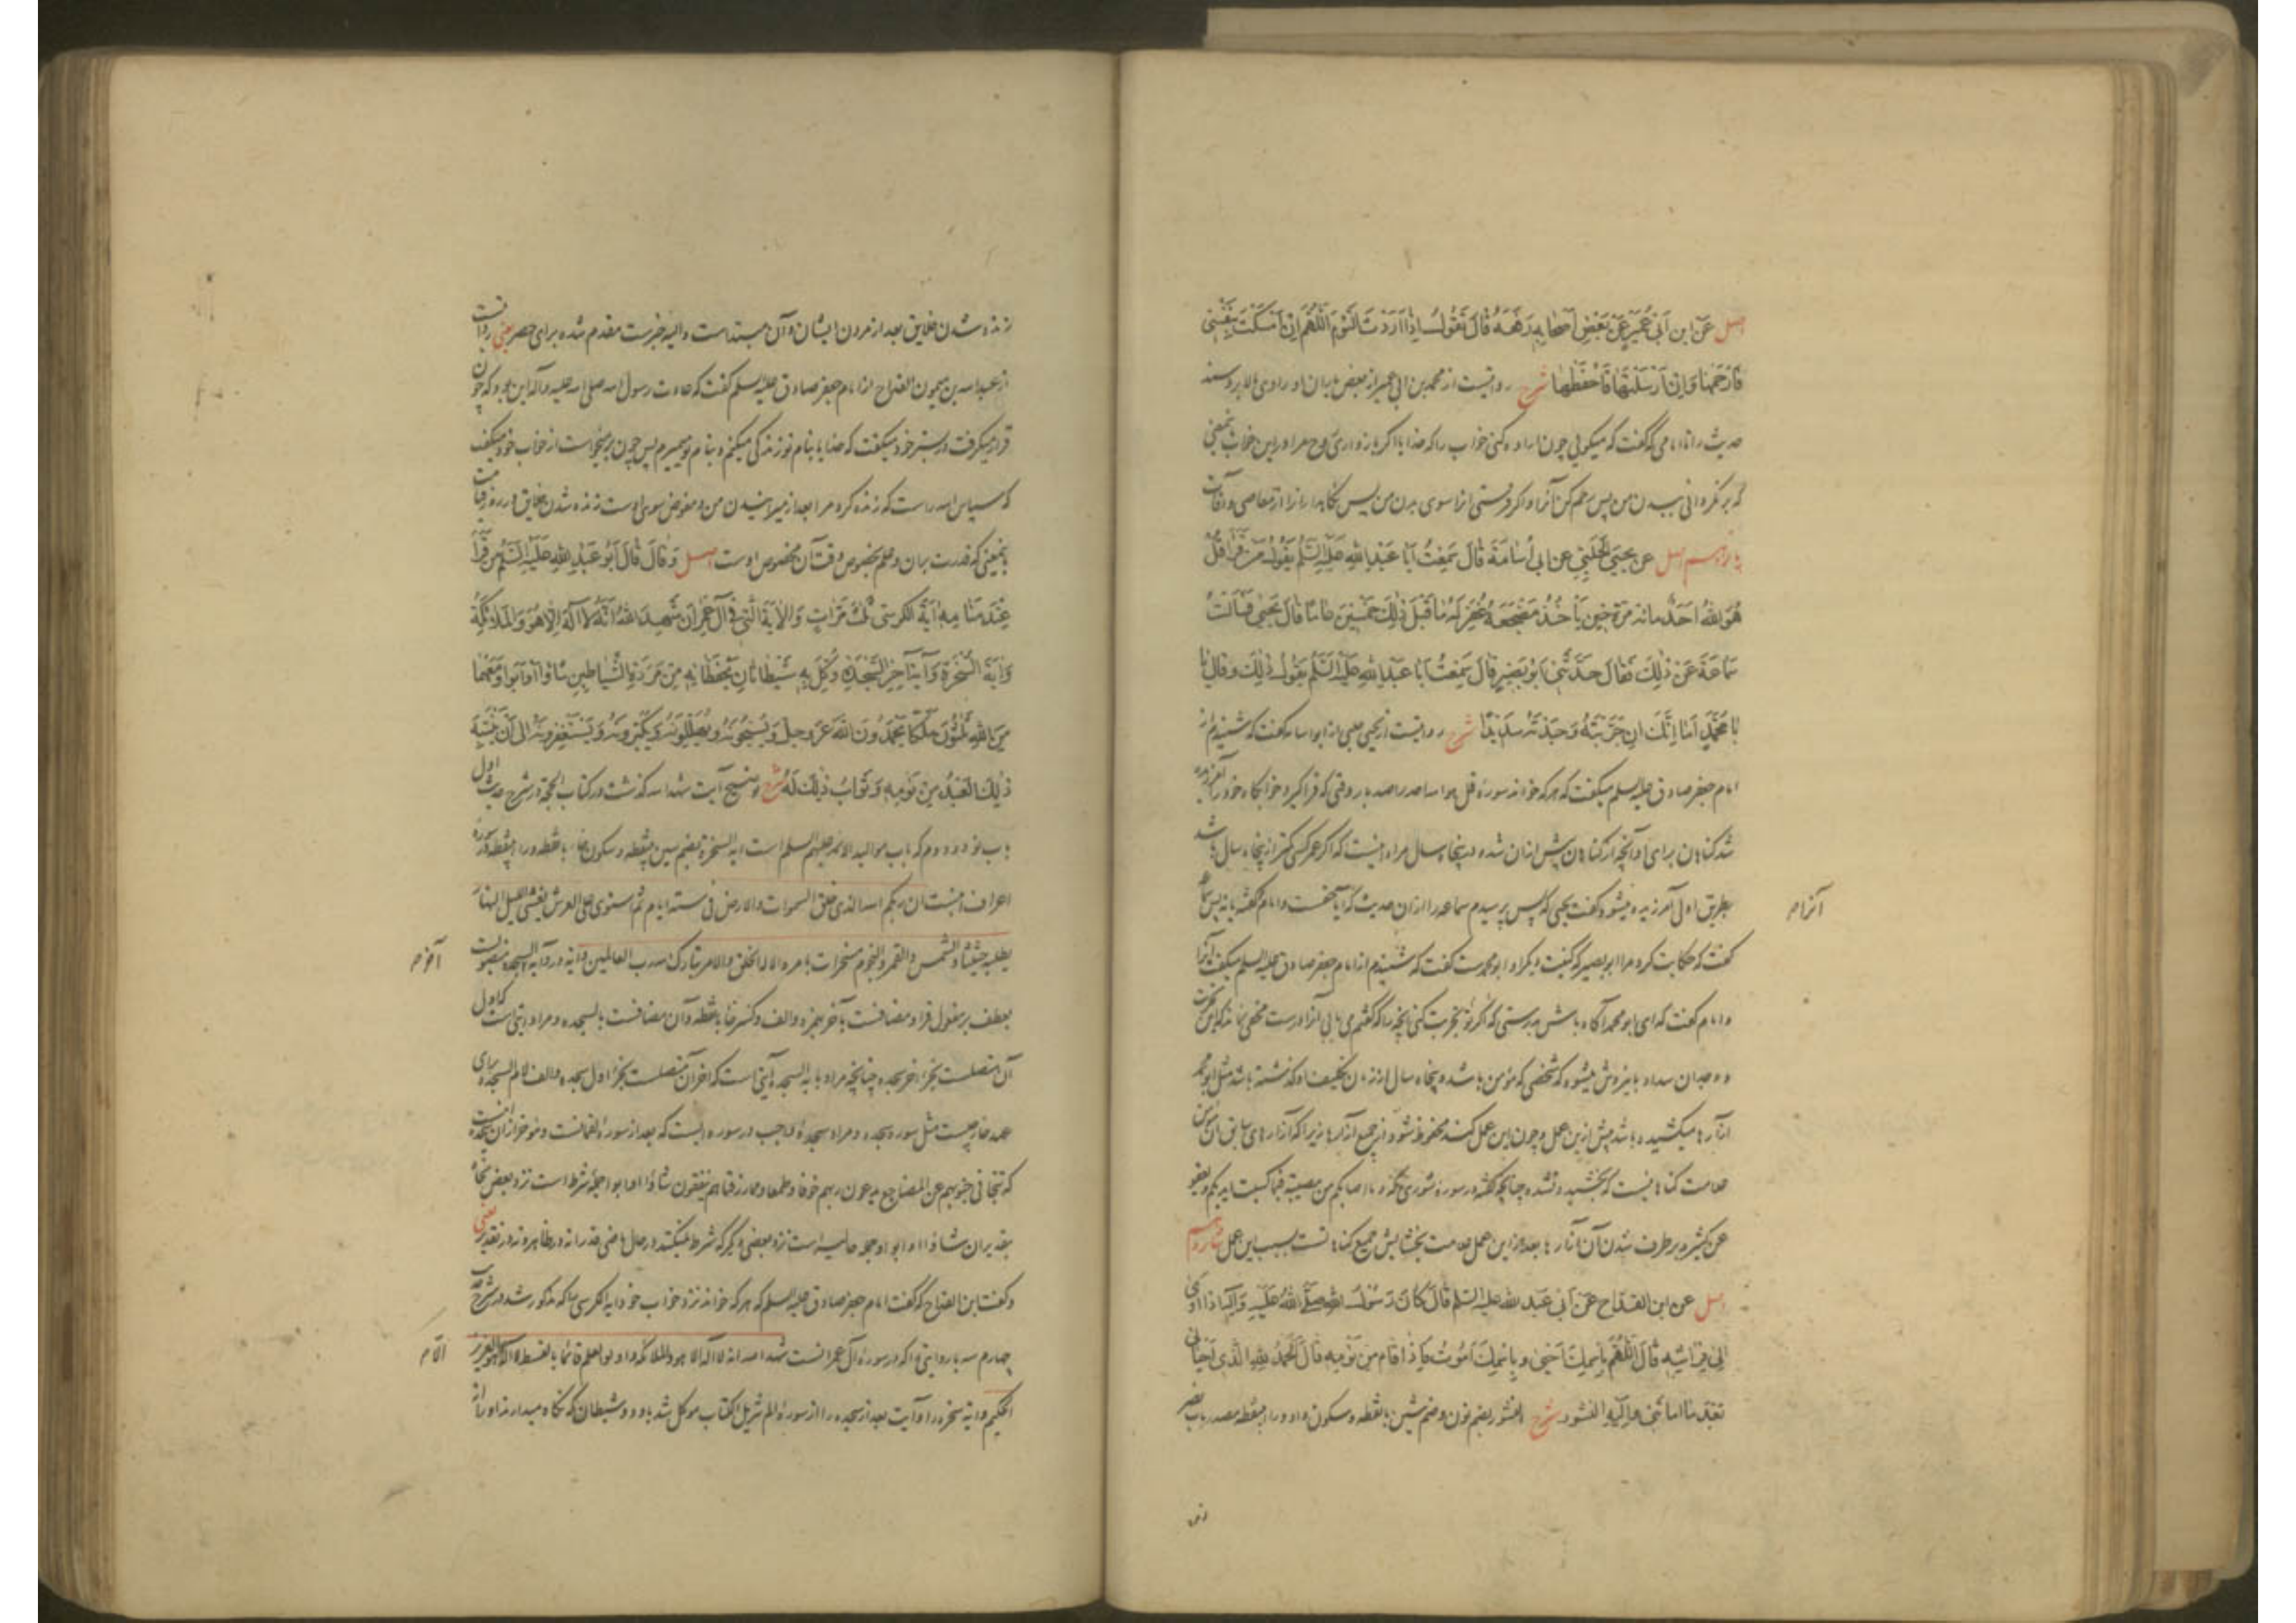 اصل عَنِ ابنِ اَبی عُمَیرٍ عَن بَعضِ اَصحابِهِ رَفَعَهُ قالَ تَقُولُ اِذا اَرَدتَ النَّومَ اَللّهُمَّ اِن اَمسَکتَ نَفسی
فَارحَمها وَاِن اَرسَلتَها فَاحفَظها شرح روایتست از محمد بن ابی عمیر از بعض یاران او راوی بالا برد سند
حدیث را تا امامی که گفت که میگویی چون اراده کنی خواب را که خدایا اگر بازداری روح مرا در این خواب بمعنی
که برنگردانی ببدن من پس رحم کن آنرا و اگر فرستی انرا سوی بدن من پس نگاهدار انرا از معاصی و آفات
یازدهم اصل عن یحیی الحلبی عن ابی اُسامَةَ قالَ سَمِعتُ اَبا عَبدِ اللهِ عَلَیهِ السَّلم یَقولُ مَن قَرَاَ قُل
هُوَ اللهُ اَحَدٌ مائه مَرّةٍ حینَ یَاخُذُ مَضجَعَهُ غُفِرَ لَهُ ما قَبلَ ذٰلِکَ خَمسینَ عاماً قالَ یَحیی فَسَاَلتُ
سَماعَةَ عَن ذٰلِکَ فَقالَ حَدَّثَنی اَبو بَصیرٍ قالَ سَمِعتُ اَبا عَبدِ اللهِ عَلَیهِ السَّلم یَقولُ ذٰلِکَ وقال یا
اَبا مُحَمَّدٍ اَما اِنَّکَ اِن جَرَّبتَهُ وَجَدتَهُ سَدیداً شرح روایتست از یحیی حلبی از ابو اسامه گفت که شنیدم از
امام جعفر صادق علیه السلم میگفت که هر که خواند سوره قل هو الله احد را صد بار وقتی که فراگیرد خوابگاه خود را آمرزیده
شد گناهان برای او آنچه از گناهان پیش از ان شده در پنجاه سال مراد اینست که اگر عمر کسی کمتر از پنجاه سال باشد
بطریق اولی آمرزیده میشود گفت یحیی که پس پرسیدم سماعه را از ان حدیث که آیا گفت و امام گفته یا نه پس سماعه
گفت که حکایت کرد مرا ابو بصیر که کنیت دیگر او ابو محمد ست گفت که شنیدم از امام جعفر صادق علیه السلم میگفت آنرا
و امام گفت که ای ابو محمد آگاه باش بدرستی که اگر تو تجربت کنی آنچه را که گفتم می یابی آنرا درست مخفی نماند که این تجربت
و وجدان سداد باین روش میشود که شخصی که مؤمن باشد و پنجاه سال از زمان تکلیف او گذشته باشد مثل ابو محمد
آزارها میکشیده باشد پیش ازین عمل و چون این عمل کند محفوظ شود از جمیع آزارها زیرا که آزارهای سابق ان مؤمن
علامت گناهیست که بخشیده نشده چنانچه گفته در سوره شوری که و ما اصابکم من مصیبة فبما کسبت ایدیکم ویعفو
عن کثیر و برطرف شدن آن آزارها بعد ازین عمل علامت بخشایش جمیع گناهانست بسبب این عمل دوازدهم
اصل عن ابن القدّاح عَن اَبی عَبدِ اللهِ علیه السَّلم قالَ کانَ رَسُولُ اللهِ صَلَّی اللهُ عَلَیهِ وَآلِه اِذا اَوی
اِلی فِراشِهِ قالَ اَللّهُمَّ بِاسمِکَ اَحیی وبِاسمِکَ اَمُوتُ فَاِذا قامَ مِن نَومِهِ قالَ اَلحَمدُ للهِ الَّذی اَحیانی
بَعدَ ما اَماتَنی وَاِلَیهِ النُّشور شرح النشور بضم نون وضم شین بانقطه وسکون واو و را بینقطه مصدر باب نصر
انراه
زنده
زنده شدن خلایق بعد از مردن ایشان و آن مبتداست و الیه خبرست مقدم شده برای حصر یعنی روایتست
از عبدالله بن میمون القداح از امام جعفر صادق علیه السلم گفت که عادت رسول الله صلی الله علیه وآله این بود که چون
قرار میگرفت در بستر خود میگفت که خدایا بنام تو زندگی میکنم و بنام تو میمیرم پس چون برمیخواست از خواب خود میگفت
که سپاس الله راست که زنده کرد مرا بعد از میرانیدن من و مفوض سوی اوست زنده شدن خلایق در روز قیامت
بمعنی که قدرت بران و علم بخصوص وقت آن مخصوص اوست اصل وَقالَ قالَ اَبُو عَبدِ اللهِ عَلَیهِ السَّلم مَن قَرَاَ
عِندَ مَنامِهِ اٰیَةَ الکرسیّ ثلث مَرّاتٍ وَالاٰیَةَ الَّتی فی اٰل عِمرانَ شَهِدَ اللهُ اَنَّهُ لا اِلٰهَ اِلّا هُوَ وَالمَلائِکَةُ
وَاٰیَةَ السُّخرَةِ وَاٰیَةَ آخِرِ السَّجدَةِ وُکِّلَ بِهِ شَیطانانِ یَحفَظانِهِ مِن مَرَدَةِ الشَّیاطینِ شاؤا اَو اَبَوا وَمَعَهُما
مِنَ اللهِ ثَلثُونَ مَلَکاً یَحمَدُونَ اللهَ عَزَّ وجلَّ وَیُسَبِّحُونَهُ ویُهَلِّلُونَهُ وَیُکَبِّرونَهُ وَیَستَغفِرونَهُ اِلی اَن یَنتَبِهَ
ذٰلِکَ العَبدُ مِن نَومِهِ وَثَوابُ ذٰلِکَ لَهُ شرح توضیح آیت شهد الله گذشت در کتاب الحجة در شرح حدیث اول
باب نود و دوم که باب موالید الائمه علیهم السلم است ایة السخرة بضم سین بینقطه وسکون خا بانقطه و را بینقطه در سوره
اعراف اینست ان ربکم الله الذی خلق السموات والارض فی ستة ایام ثم استوی علی العرش یغشی اللیل النهار
یطلبه حثیثا والشمس والقمر والنجوم مسخرات بامره الا له الخلق والامر تبارک الله رب العالمین و ایة در و ایة السجده منصوبست
بعطف بر مفعول قرا و مضافست بآخر بهمزه و الف و کسر خا بانقطه و آن مضافست بالسجده و مراد ایتی است که اول
آن متصلست بجزء اخر سجده چنانچه مراد بایة السجده آیتی است که اخر آن متصلست بجزء اول سجده و الف لام السجده برای
عهد خارجیست مثل سوره سجده و مراد سجده واجب در سوره ایست که بعد از سوره لقمانست و مؤخر از ان سجده اینست
که تتجافی جنوبهم عن المضاجع یدعون ربهم خوفا وطمعا ومما رزقناهم ینفقون شاؤا او ابوا جمله شرط است نزد بعض نحاة
بتقدیر ان شاؤا او ابوا و جمله حالیه است نزد بعضی دیگر که شرط نمیکنند در حال ماضی قد را نه در ظاهر و نه در تقدیر یعنی
وگفت ابن القداح که گفت امام جعفر صادق علیه السلم که هر که خواند نزد خواب خود ایة الکرسی را که مذکور شد در شرح حدیث
چهارم سه بار و ایتی را که در سوره آل عمرانست شهد الله انه لا اله الا هو والملائکة واولوا العلم قائما بالقسط لا اله الا هو العزیز
الحکیم و ایة سخره را و آیت بعد از سجده را از سوره الم تنزیل الکتاب موکل شد باو دو شیطان که نگاه میدارند او را از